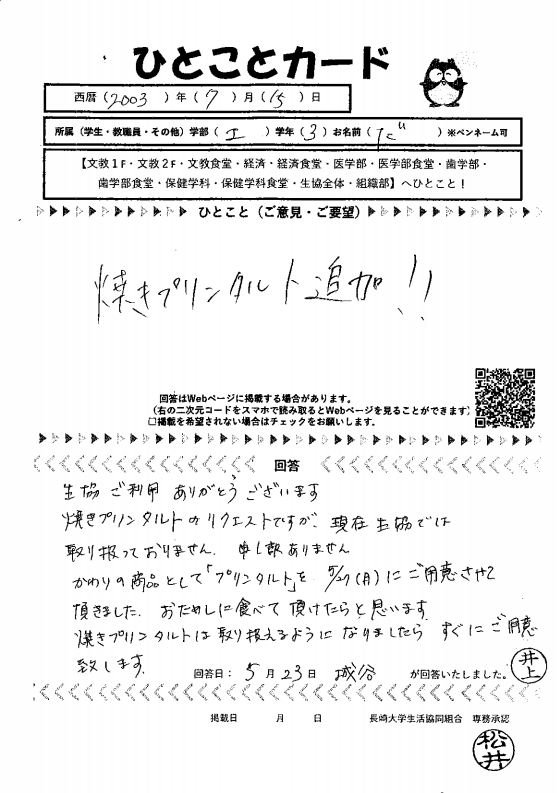 ひとことカード
西暦（2003　）年（7　）月（15　）日
所属（学生・教職員・その他）学部（　工　）学年（3）お名前（　）※ペンネーム可
【文教１F・文教２F・文教食堂・経済・経済食堂・医学部・医学部食堂・歯学部・
歯学部食堂・保健学科・保健学科食堂・生協全体・組織部】へひとこと！
ひとこと（ご意見・ご要望）
焼きプリンタルト追加!!
回答はWebページに掲載する場合があります。
（右の二次元コードをスマホで読み取るとWebページを見ることができます）
□掲載を希望されない場合はチェックをお願いします。
回答
生協ご利用ありがとうございます
焼きプリンタルトのリクエストですが、現在生協では
取り扱っておりません。申し訳ありません
かわりの商品として「プリンタルト」を5/27(月)にご用意させて
頂きました。おためしに食べて頂けたらと思います。
焼きプリンタルトは取り扱えるようになりましたらすぐにご用意
致します。
回答日：5月23日　城谷　が回答いたしました。　井上
掲載日　　月　　日　　長崎大学生活協同組合　専務承認
松井